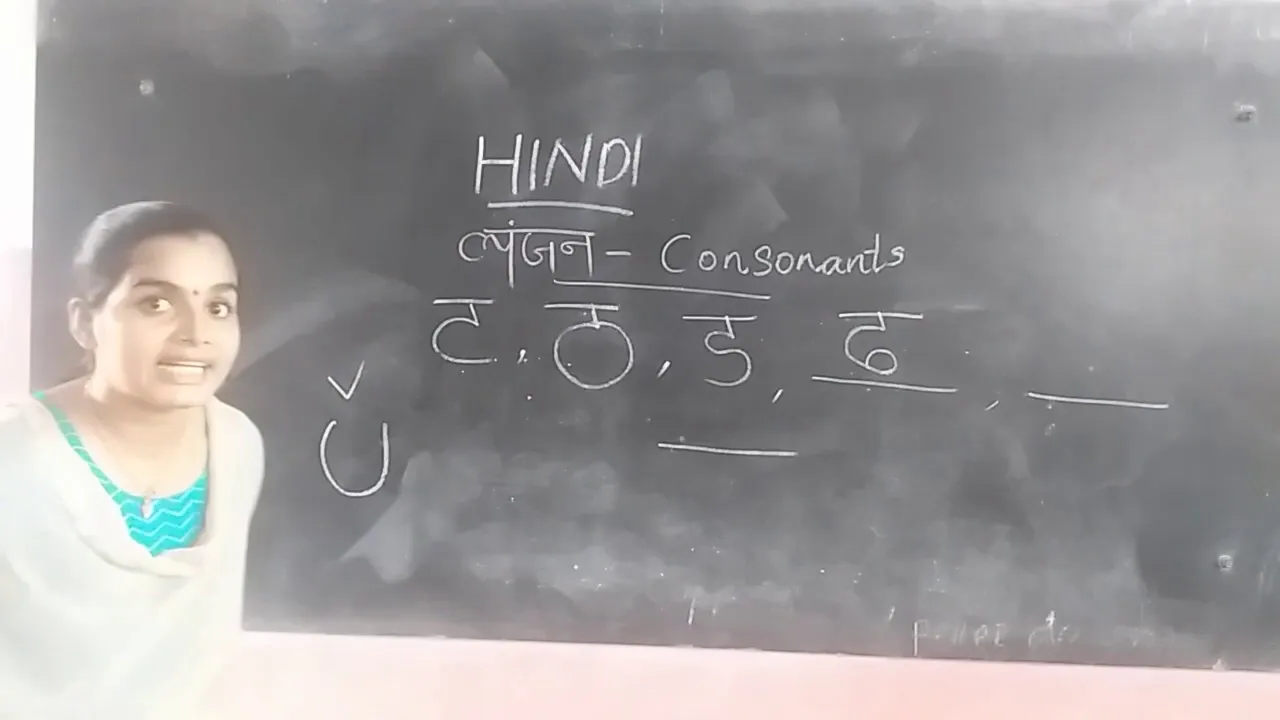 HINDI
व्यंजन - Consonants
ट, ठ, ड, ढ, __
U